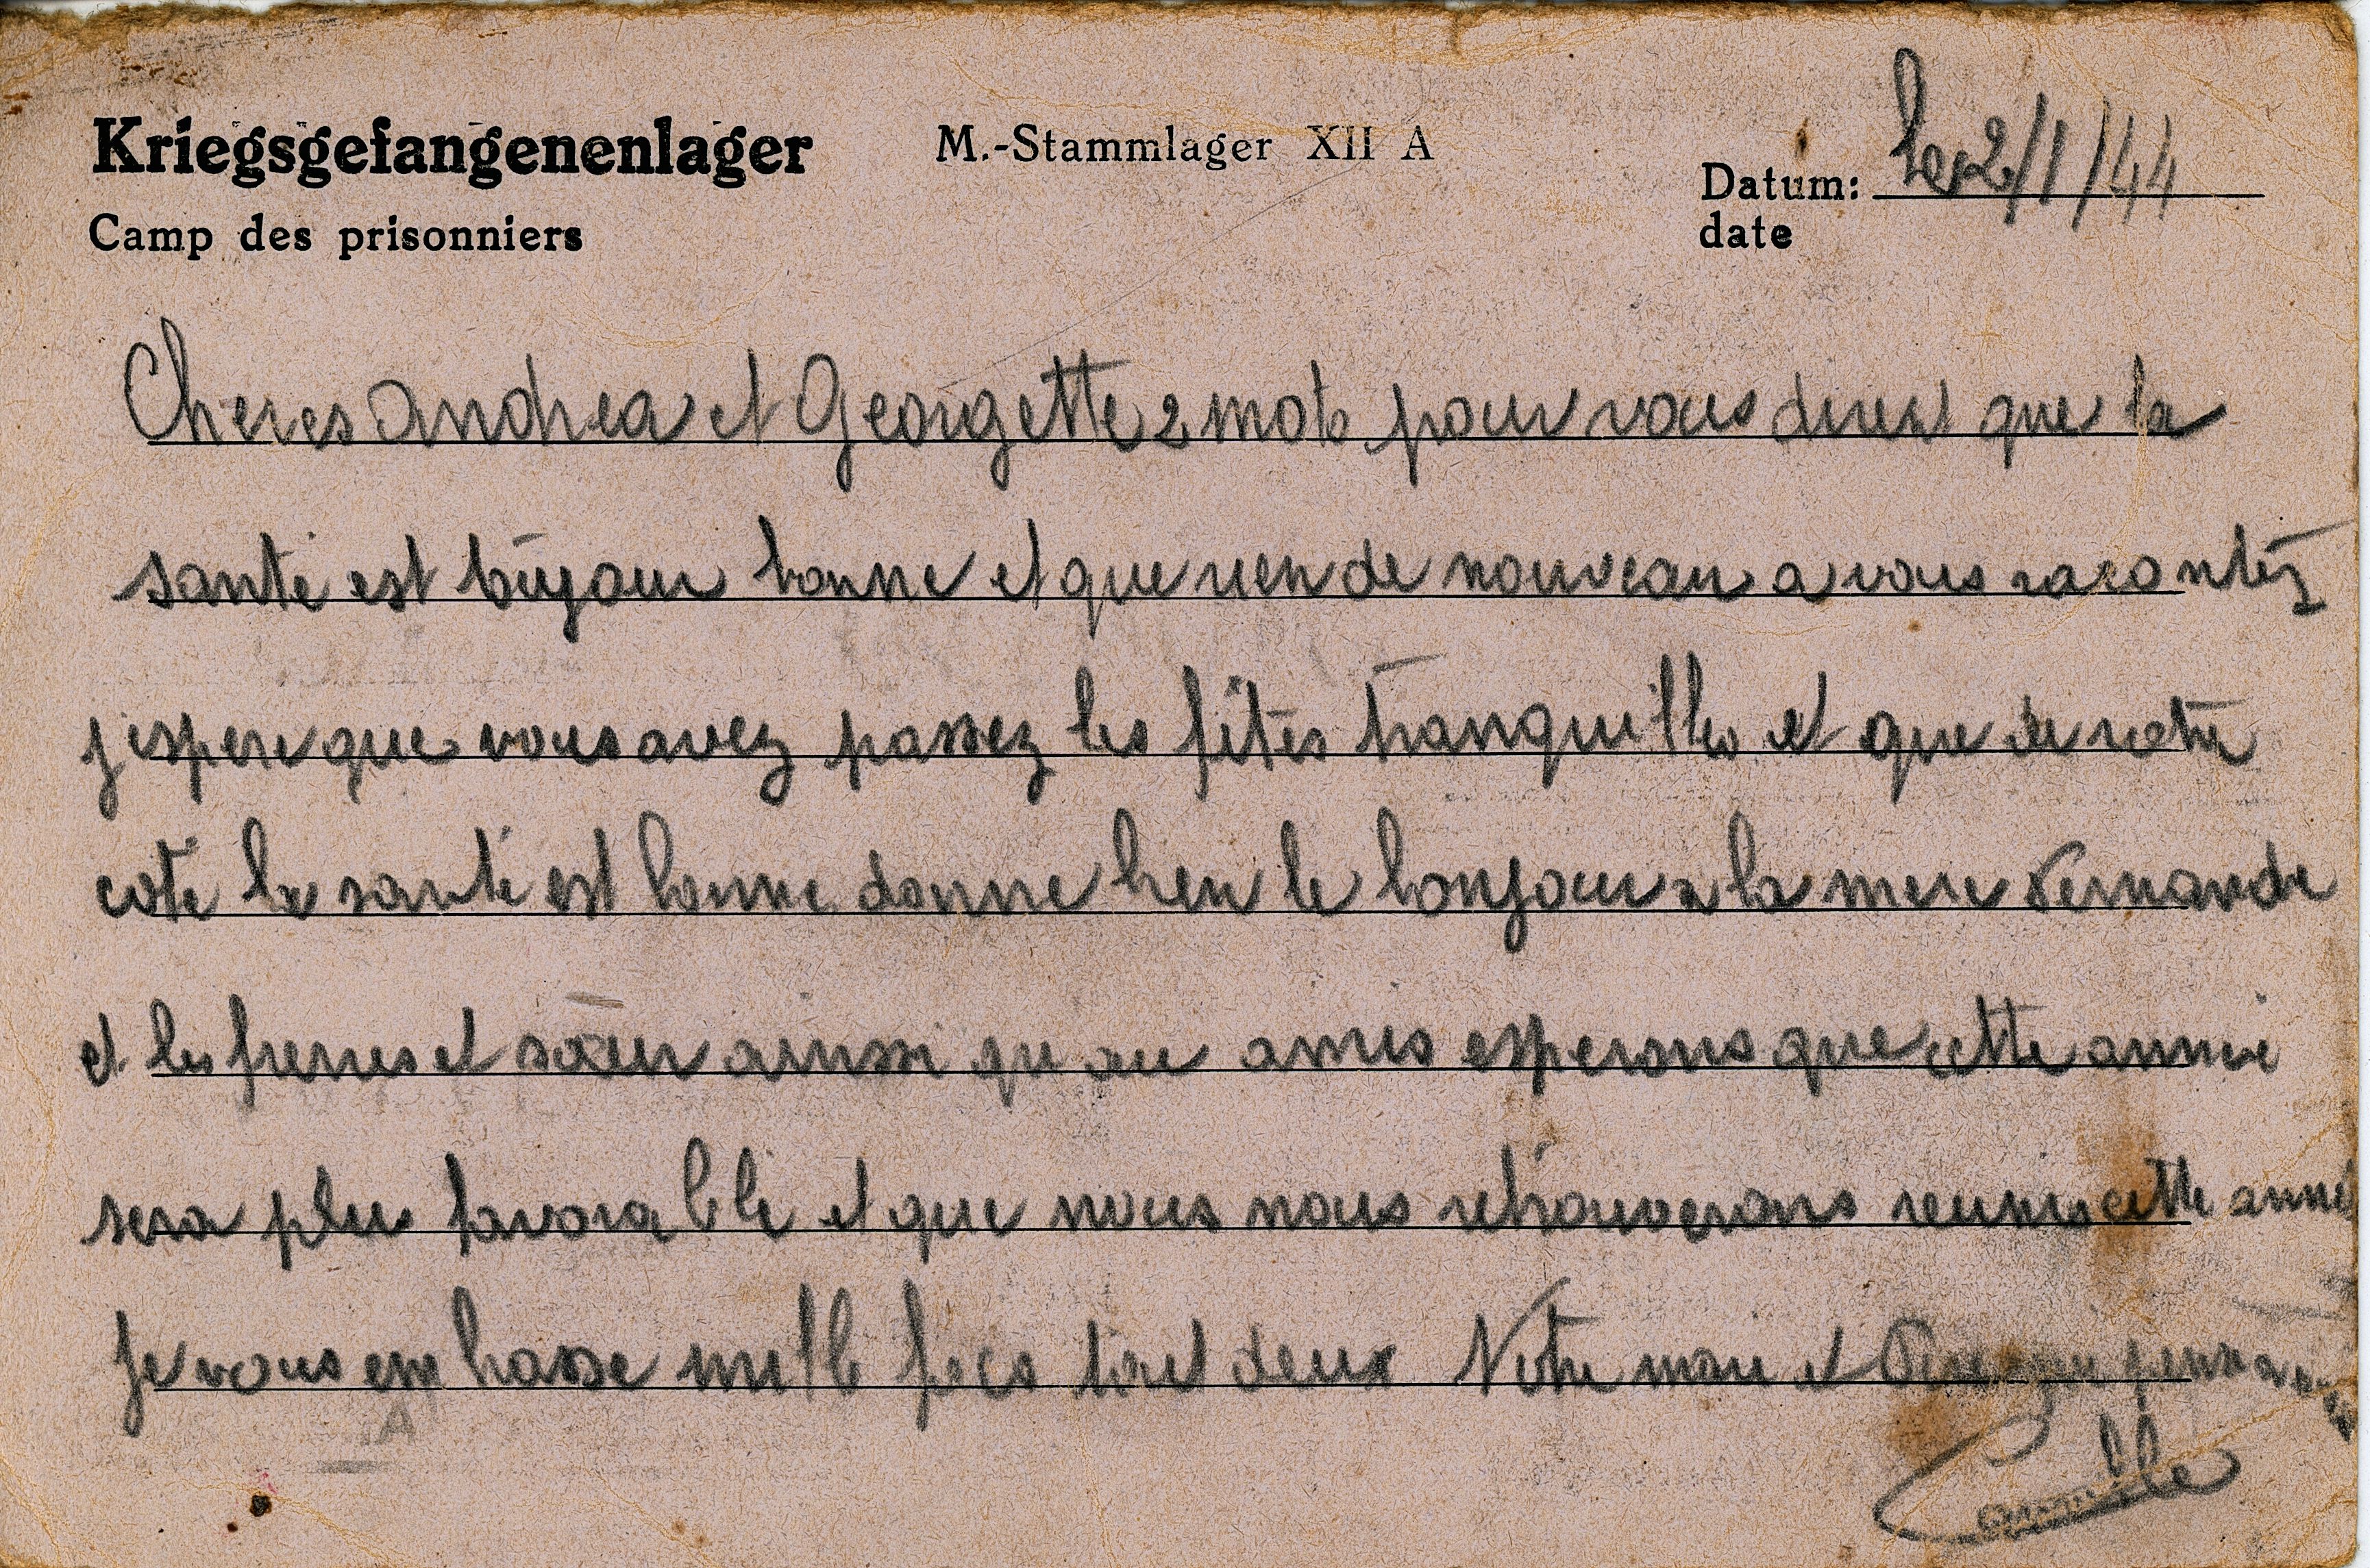 Kriegsgefangenenlager M.-Stammlager XII A Datum: le 2/1/44
Camp des prisonniers date
Cheres Andrea et Georgette 2 mots pour vous direst que la
santé est toujour bonne et que rien de nouveau a vous racontéz
j espere que vous avez passez les fêtes tranquilles et que de votre
coté la santé est bonne donne bien le bonjour a la mere Fernande
et les freres et soeur ainssi qu au amies esperons que cette année
sera plus favorable et que nous nous retrouverons reunis cette anné
Je vous em basse mille fois tout deux Votre mari et
Camille